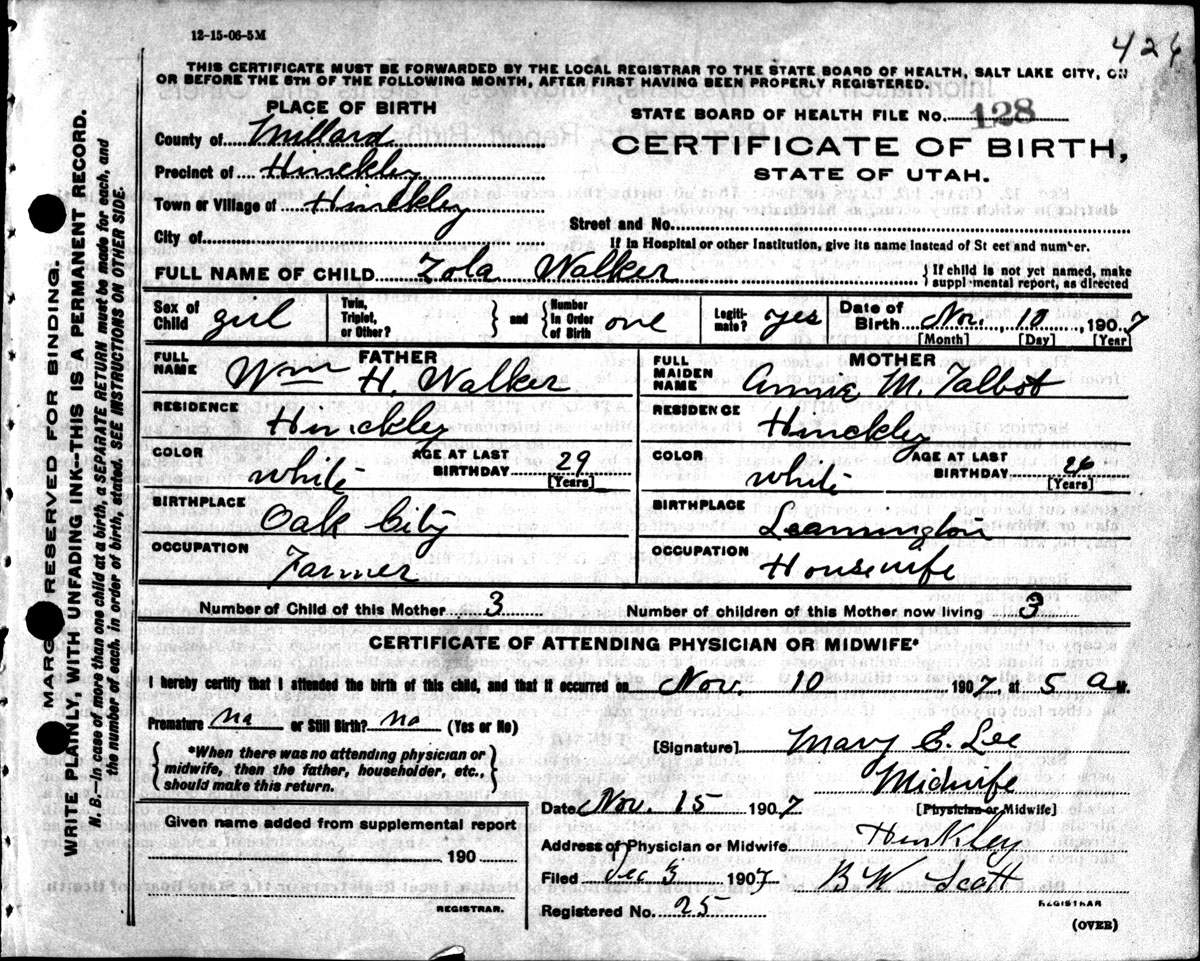 12-15-06-5M
426
THIS CERTIFICATE MUST BE FORWARDED BY THE LOCAL REGISTRAR TO THE STATE BOARD OF HEALTH, SALT LAKE CITY, ON
OR BEFORE THE 5TH OF THE FOLLOWING MONTH, AFTER FIRST HAVING BEEN PROPERLY REGISTERED.
PLACE OF BIRTH
County of Millard
Precinct of Hinckley
Town or Village of Hinckley
City of
STATE BOARD OF HEALTH FILE No. 128
CERTIFICATE OF BIRTH,
STATE OF UTAH.
Street and No.
If in Hospital or other Institution, give its name instead of St eet and number.
FULL NAME OF CHILD Zola Walker
} If child is not yet named, make
suppl mental report, as directed
Sex of Child girl
Twin, Triplet, or Other? } and { Number in Order of Birth one
Legiti-mate? yes
Date of Birth Nov. 10, 1907
[Month] [Day] [Year]
FATHER
FULL NAME Wm H. Walker
RESIDENCE Hinckley
COLOR White AGE AT LAST BIRTHDAY 29
[Years]
BIRTHPLACE Oak City
OCCUPATION Farmer
MOTHER
FULL MAIDEN NAME Annie M. Talbot
RESIDENCE Hinckley
COLOR White AGE AT LAST BIRTHDAY 26
[Years]
BIRTHPLACE Leamington
OCCUPATION Housewife
Number of Child of this Mother 3 Number of children of this Mother now living 3
CERTIFICATE OF ATTENDING PHYSICIAN OR MIDWIFE*
I hereby certify that I attended the birth of this child, and that it occurred on Nov. 10 1907, at 5 A M.
Premature no or Still Birth? no (Yes or No)
{ *When there was no attending physician or
midwife, then the father, householder, etc.,
should make this return. }
[Signature] Mary E. Lee
Midwife
[Physician or Midwife]
Date Nov. 15 1907
Address of Physician or Midwife Hinkley
Filed Dec 3 1907 B W Scott
REGISTRAR
Registered No. 25
(OVER)
Given name added from supplemental report
190
REGISTRAR.
MARG RESERVED FOR BINDING.
WRITE PLAINLY, WITH UNFADING INK--THIS IS A PERMANENT RECORD.
N. B.—In case of more than one child at a birth, a SEPARATE RETURN must be made for each, and
the number of each, in order of birth, stated. SEE INSTRUCTIONS ON OTHER SIDE.